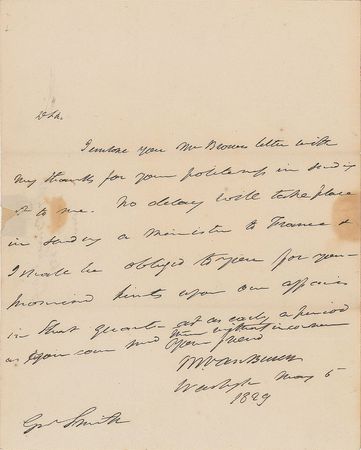 Dr Sir.
I enclose you Mr Browns letter with
my thanks for your politeness in sending
it to me. No delay will take place
in sending a minister to France &
I shall be obliged to you for your
promised hints upon our affairs
in that quarter at as early a period
as you can send them without inconven
Your friend
MVanBuren
Washgtn May 5
1829
Gnl Smith